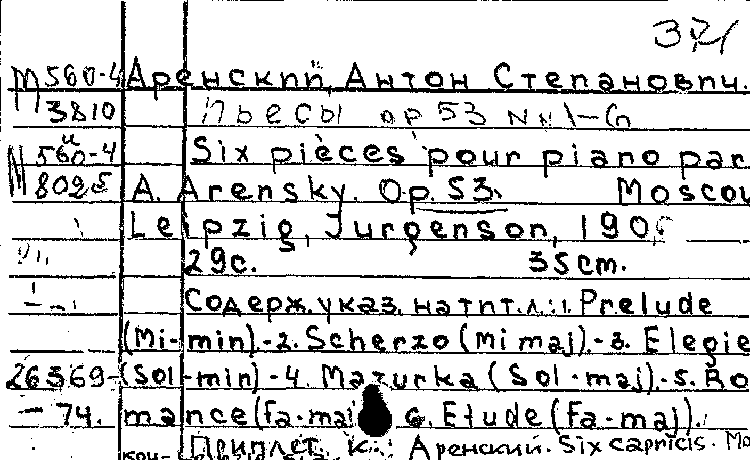 371
М560-4 Аренский, Антон Степанович.
3810 Пьесы ор 53 NN 1-6
и
М 560-4 Six pièces pour piano par
8025 A. Arensky. Op. 53. Moscou
Leipzig, Jurgenson, 190
29с. 35cm.
Содерж. указ. на тит. л.: 1. Prelude
(Mi-min).-2. Scherzo (Mi maj).-3. Elegie
26369- (Sol-min)-4. Mazurka (Sol-maj).-5. Ro
-74. mance (Fa-maj 6. Etude (Fa-maj).
Приплет. к.: Аренский. Six capricis. Mo